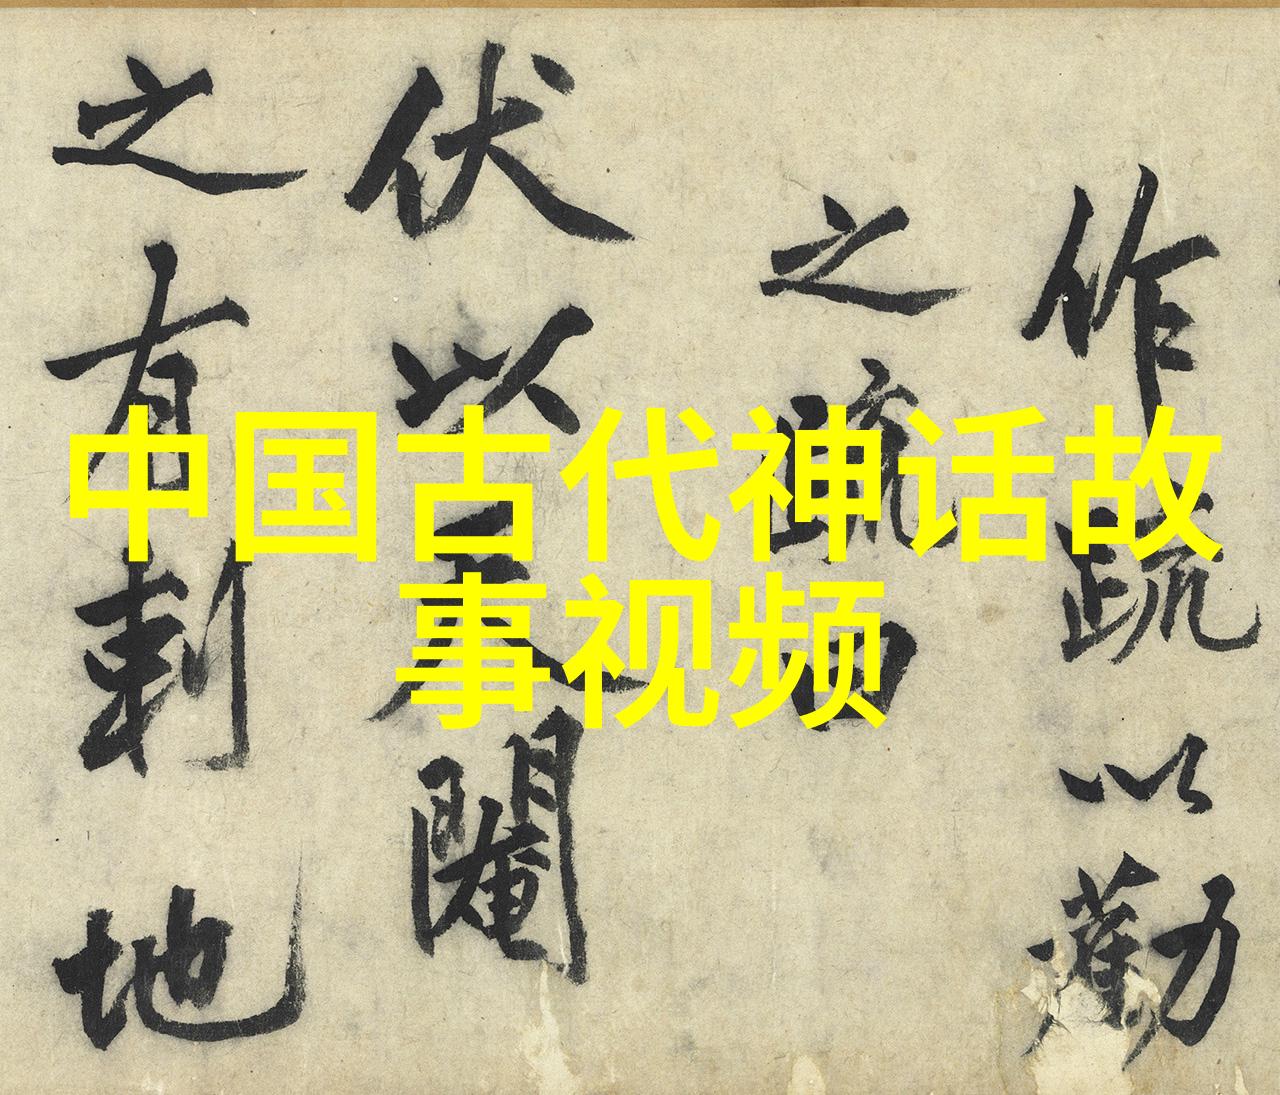 作疏以勸
之疏曰
伏以天閹
之有刺地
中国古代神话故
事视频